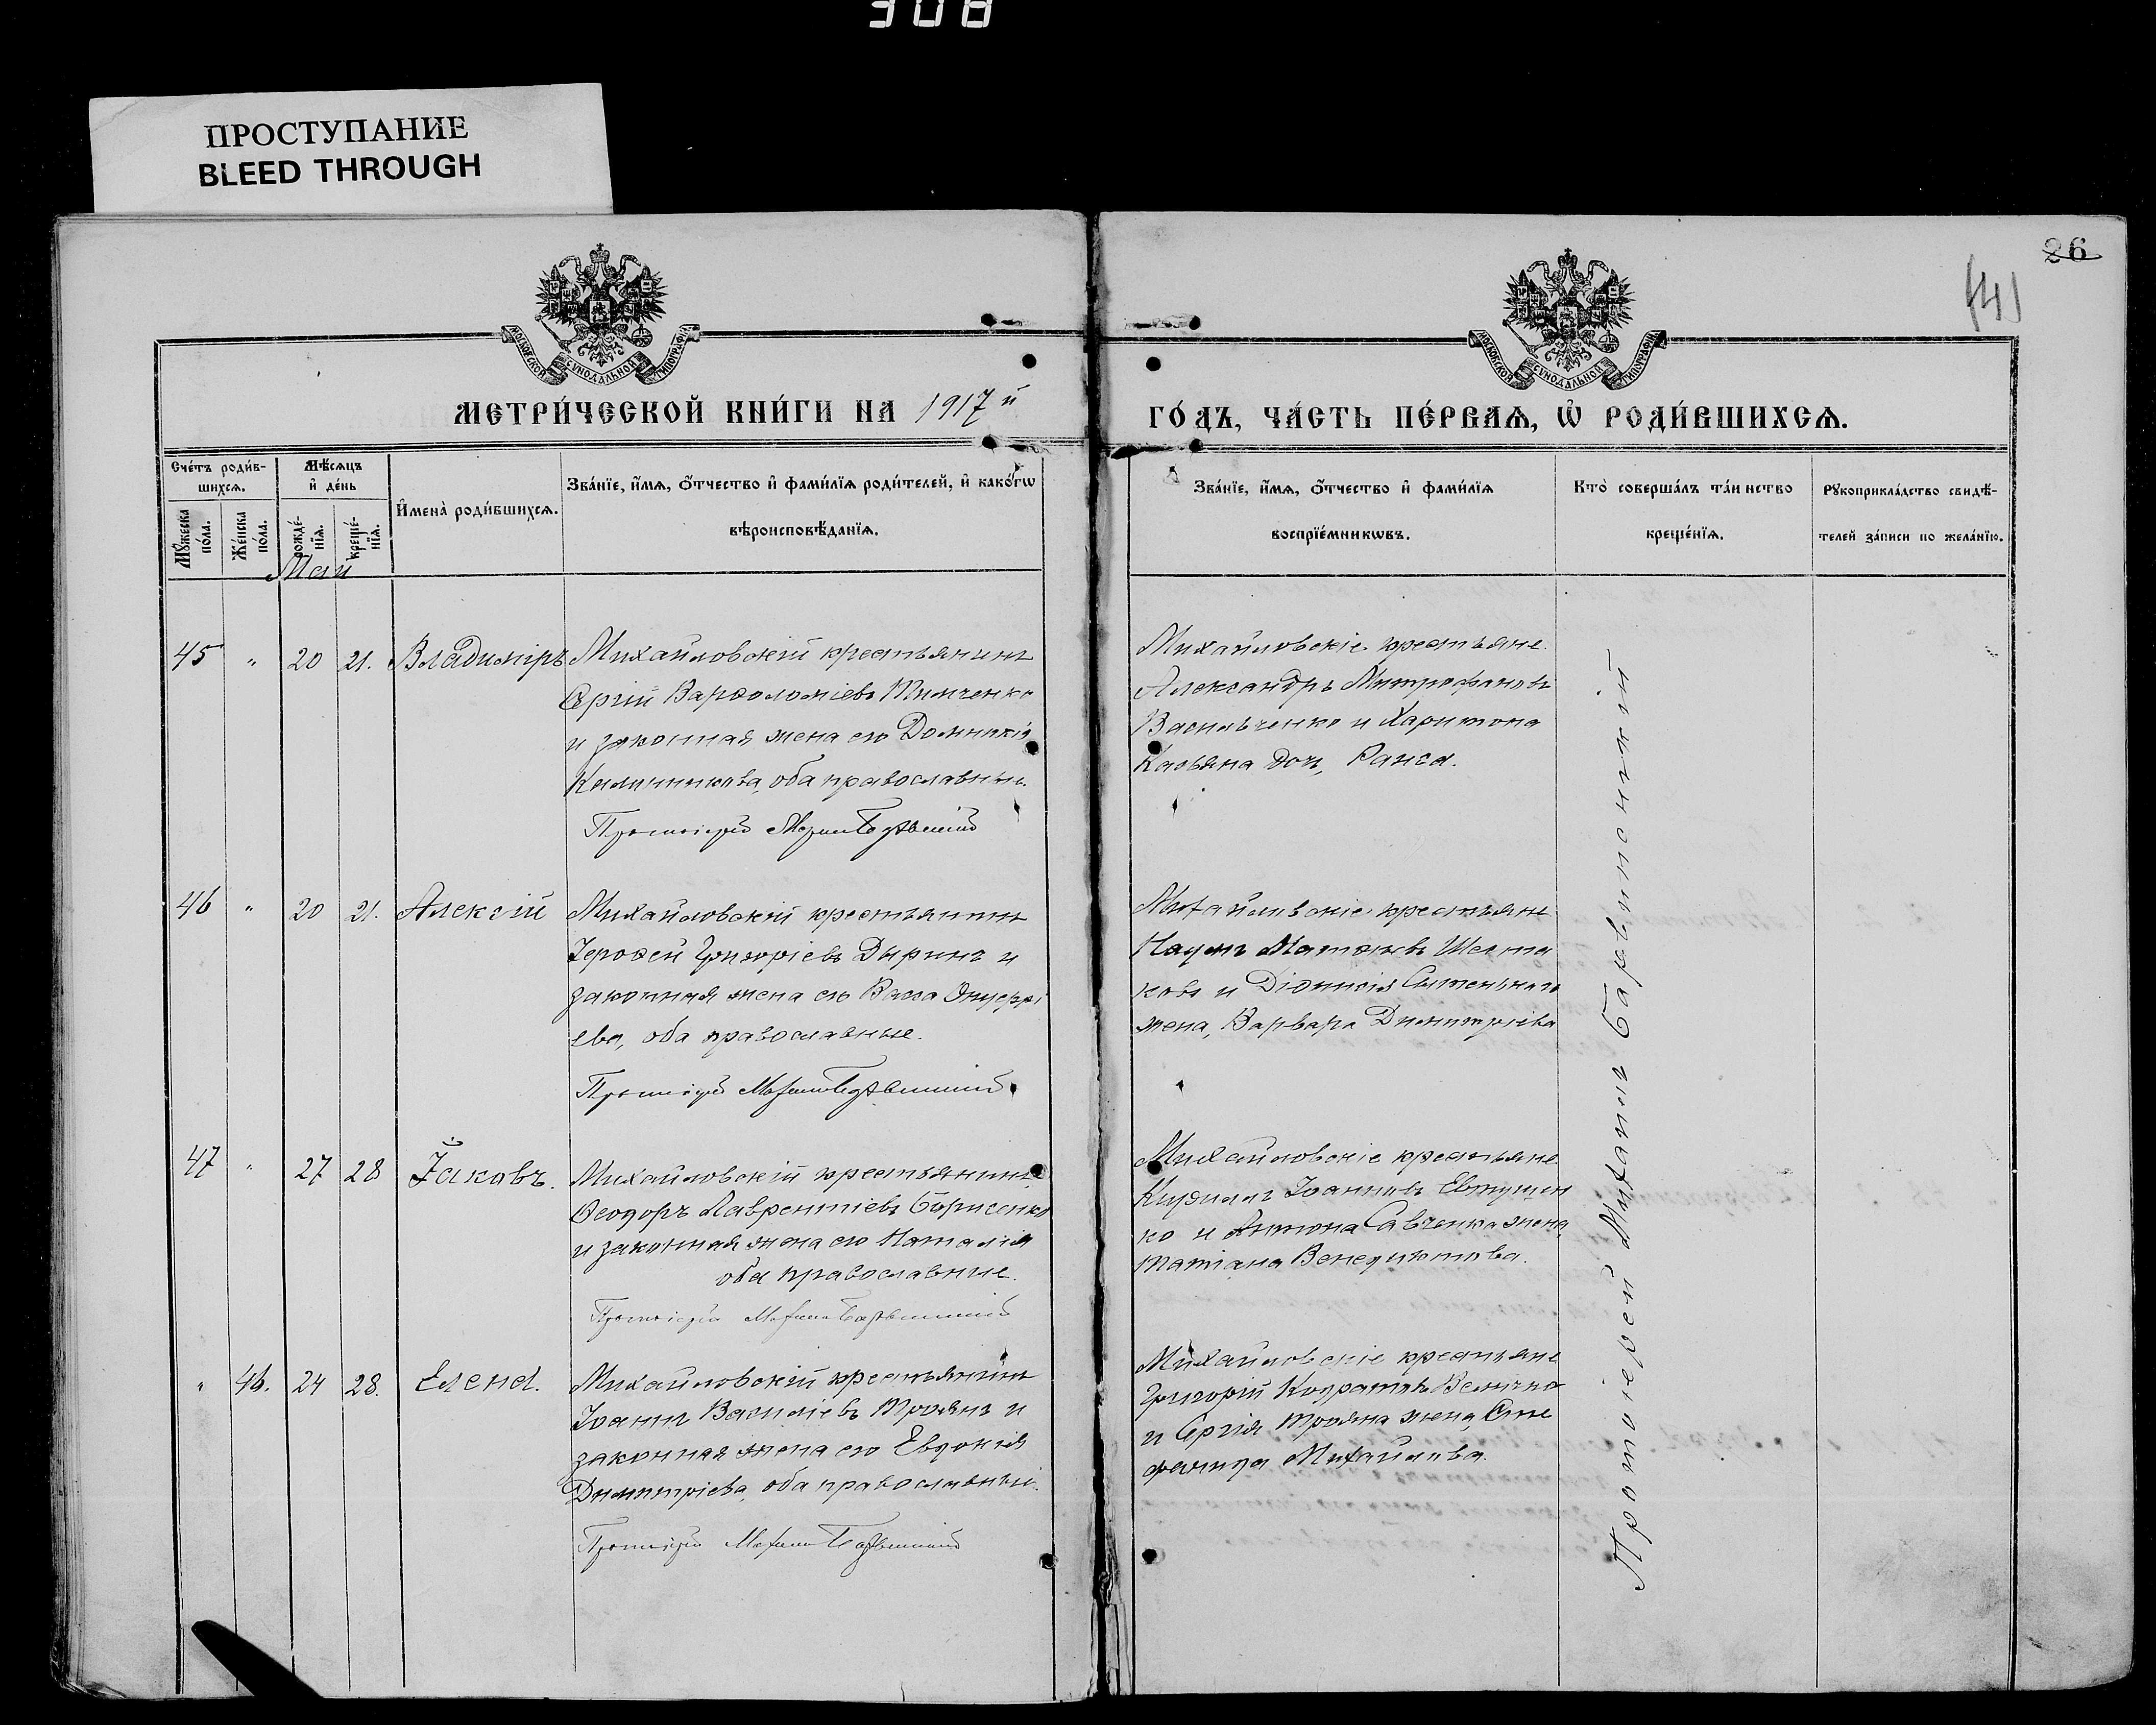 308
ПРОСТУПАНИЕ
BLEED THROUGH
26
141
МОСКОВСКОЙ СѴНОДАЛЬНОЙ ТИПОГРАФІИ
МОСКОВСКОЙ СѴНОДАЛЬНОЙ ТИПОГРАФІИ
МЕТРИ́ЧЕСКОЙ КНИ́ГИ НА 1917 й
ГО́ДЪ, ЧА́СТЬ ПЕ́РВАѦ, Ѡ҆ РОДИ́ВШИХСѦ.
Сче́тъ роди́в-
шихсѧ.
Мꙋ́жеска по́ла.
Же́нска по́ла.
Мѣ́сѧцъ
и҆ де́нь
рожде́-нїѧ.
креще́-нїѧ.
И҆мена̀ роди́вшихсѧ.
Зва́нїе, и҆́мѧ, ѻ҆́тчество и҆ фами́лїѧ роди́телей, и҆ како́гѡ
вѣроисповѣ́данїѧ.
Зва́нїе, и҆́мѧ, ѻ҆́тчество и҆ фами́лїѧ
воспрїе́мникѡвъ.
Кто̀ соверша́лъ та́инство
креще́нїѧ.
Рꙋкоприкла́дство свидѣ́-
телей за́писи по жела́нїю.
Май
45 " 20 21. Владиміръ
Михайловскій крестьянинъ
Сергій Варѳоломіевъ Тимченко
и законная жена его Домникія
Калинникова, оба православные.
Протоіерей
Михайловскіе крестьяне
Александръ Митрофановъ
Васильченко и Харитона
Касьяна дочь, Раиса.
46 " 20 21. Алексій
Михайловскій крестьянинъ
Іероѳей Григоріевъ Дыринъ и
законная жена его Васса Онуфрі
ева, оба православные.
Протоіерей
Михайловскіе крестьяне
Наумъ Шеста
ковъ и Діонисія
жена, Варвара Димитріева
47 " 27 28 Іаковъ.
Михайловскій крестьянинъ
Ѳеодоръ Лаврентіевъ Борисенко
и законная жена его Наталія
оба православные.
Протоіерей
Михайловскіе крестьяне
Кириллъ Іоанновъ Евтушен
ко и Антона Савченка жена,
Татіана Венедиктова.
" 46. 24 28. Елена.
Михайловскій крестьянинъ
Іоаннъ Василіевъ Троянъ и
законная жена его Евдокія
Димитріева, оба православные.
Протоіерей
Михайловскіе крестьяне
Григорій Кодратовъ Величко
и Сергія Трояна жена, Сте
фанида Михайлова.
Протоіерей Михаилъ Барвинскій